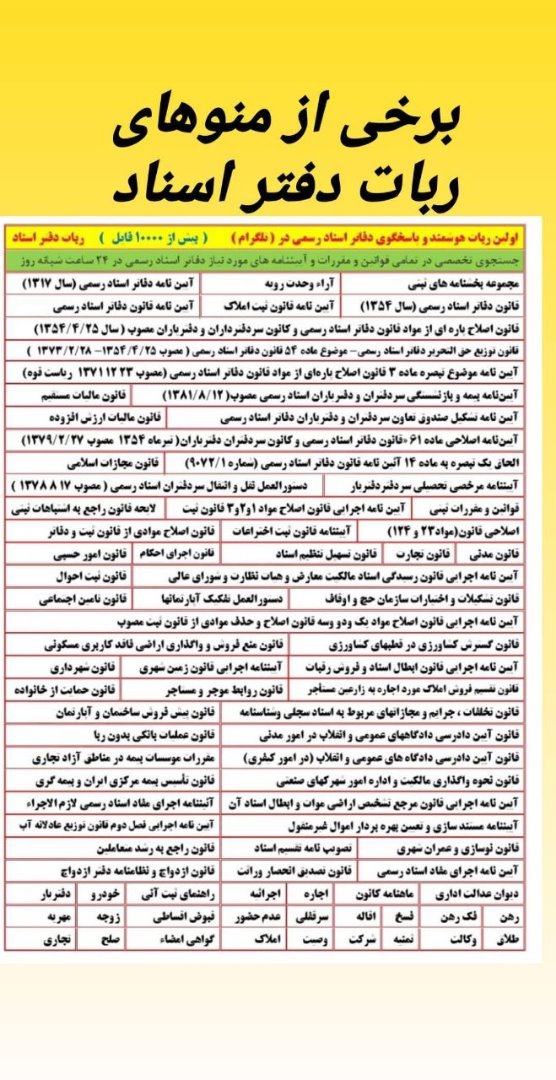 برخی از منوهای
ربات دفتر اسناد
اولین ربات هوشمند و پاسخگوی دفاتر اسناد رسمی در ( تلگرام ) ( بیش از ۱۰۰۰۰ فایل ) ربات دفتر اسناد
جستجوی تخصصی در تمامی قوانین و مقررات و آییننامه های مورد نیاز دفاتر اسناد رسمی در ۲۴ ساعت شبانه روز
مجموعه بخشنامه های ثبتی آراء وحدت رویه آیین نامه دفاتر اسناد رسمی (سال ۱۳۱۷)
قانون دفاتر اسناد رسمی (سال ۱۳۵۴) آیین نامه قانون ثبت املاک آیین نامه قانون دفاتر اسناد رسمی
قانون اصلاح پاره ای از مواد قانون دفاتر اسناد رسمی و کانون سردفترداران و دفتریاران مصوب ( سال ۱۳۵۴/۴/۲۵)
قانون توزیع حق التحریر دفاتر اسناد رسمی– موضوع ماده ۵۴ قانون دفاتر اسناد رسمی ( مصوب ۱۳۵۴/۴/۲۵– ۱۳۷۳/۲/۲۸ )
آیین نامه موضوع تبصره ماده ۳ قانون اصلاح پاره‌ای از مواد قانون دفاتر اسناد رسمی (مصوب ۲۳ ۱۲ ۱۳۷۱ ریاست قوه)
آیین‌نامه بیمه و بازنشستگی سردفتران و دفتریاران اسناد رسمی مصوب(۱۳۸۱/۸/۱۲) قانون مالیات مستقیم
آیین نامه تشکیل صندوق تعاون سردفتران و دفتریاران دفاتر اسناد رسمی قانون مالیات ارزش افزوده
آیین‌نامه اصلاحی ماده ۶۱ «قانون دفاتر اسناد رسمی و کانون سردفتران دفتریاران( تیرماه ۱۳۵۴ مصوب ۱۳۷۹/۲/۲۷)
الحاق یک تبصره به ماده ۱۴ آئین نامه قانون دفاتر اسناد رسمی (شماره ۹۰۷۲/۱) قانون مجازات اسلامی
آییننامه مرخصی تحصیلی سردفتردفتریار دستورالعمل نقل و انتقال سردفتران اسناد رسمی ( مصوب ۱۷ ۸ ۱۳۷۸ )
قوانین و مقررات ثبتی آیین نامه اجرایی قانون اصلاح مواد ۱و۲و۳ قانون ثبت لایحه قانون راجع به اشتباهات ثبتی
اصلاحی قانون(مواد۲۳ و ۱۲۴) آییننامه قانون ثبت اختراعات قانون اصلاح موادی از قانون ثبت و دفاتر
قانون مدنی قانون تجارت قانون تسهیل تنظیم اسناد قانون اجرای احکام قانون امور حسبی
آیین نامه اجرایی قانون رسیدگی اسناد مالکیت معارض و هیات نظارت و شورای عالی قانون ثبت احوال
قانون تشکیلات و اختیارات سازمان حج و اوقاف دستورالعمل تفکیک آپارتمانها قانون تامین اجتماعی
آیین نامه اجرایی قانون اصلاح مواد یک ودو وسه قانون اصلاح و حذف موادی از قانون ثبت مصوب
قانون گسترش کشاورزی در قطبهای کشاورزی قانون منع فروش و واگذاری اراضی فاقد کاربری مسکونی
آیین نامه اجرایی قانون ابطال اسناد و فروش رقبات آییننامه اجرایی قانون زمین شهری قانون شهرداری
قانون تقسیم فروش املاک مورد اجاره به زارعین مستأجر قانون روابط موجر و مستاجر قانون حمایت از خانواده
قانون تخلفات ، جرایم و مجازاتهای مربوط به اسناد سجلی وشناسنامه قانون پیش فروش ساختمان و آپارتمان
قانون آیین دادرسی دادگاههای عمومی و انقلاب در امور مدنی قانون عملیات بانکی بدون ربا
قانون آیین دادرسی دادگاه های عمومی و انقلاب (در امور کیفری) مقررات موسسات بیمه در مناطق آزاد تجاری
قانون نحوه واگذاری مالکیت و اداره امور شهرکهای صنعتی قانون تأسیس بیمه مرکزی ایران و بیمه گری
آیین نامه اجرایی قانون مرجع تشخیص اراضی موات و ابطال اسناد آن آئیننامه اجرای مفاد اسناد رسمی لازم الاجراء
آییننامه مستند سازی و تعیین بهره بردار اموال غیرمنقول آیین نامه اجرایی فصل دوم قانون توزیع عادلانه آب
قانون نوسازی و عمران شهری تصویب نامه تقسیم اسناد قانون راجع به رشد متعاملین
آیین نامه اجرای مفاد اسناد رسمی قانون تصدیق انحصار وراثت قانون ازدواج و نظامنامه دفتر ازدواج
دیوان عدالت اداری ماهنامه کانون اجاره اجرائیه راهنمای ثبت آنی خودرو دفتریار
رهن فک رهن فسخ اقاله سرقفلی عدم حضور قبوض اقساطی زوجه مهریه
طلاق وکالت تمبته شرکت وصیت املاک گواهی امضاء صلح تجاری